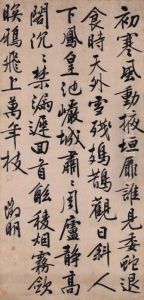 初寒風動掖垣扉誰見委蛇退
食時天外雪殘鳷鵲觀日斜人
下鳳皇池巖城肅々周廬靜高
闕沉々禁漏遲回首觚稜烟霧歛
暝鴉飛上萬年枝 徵明